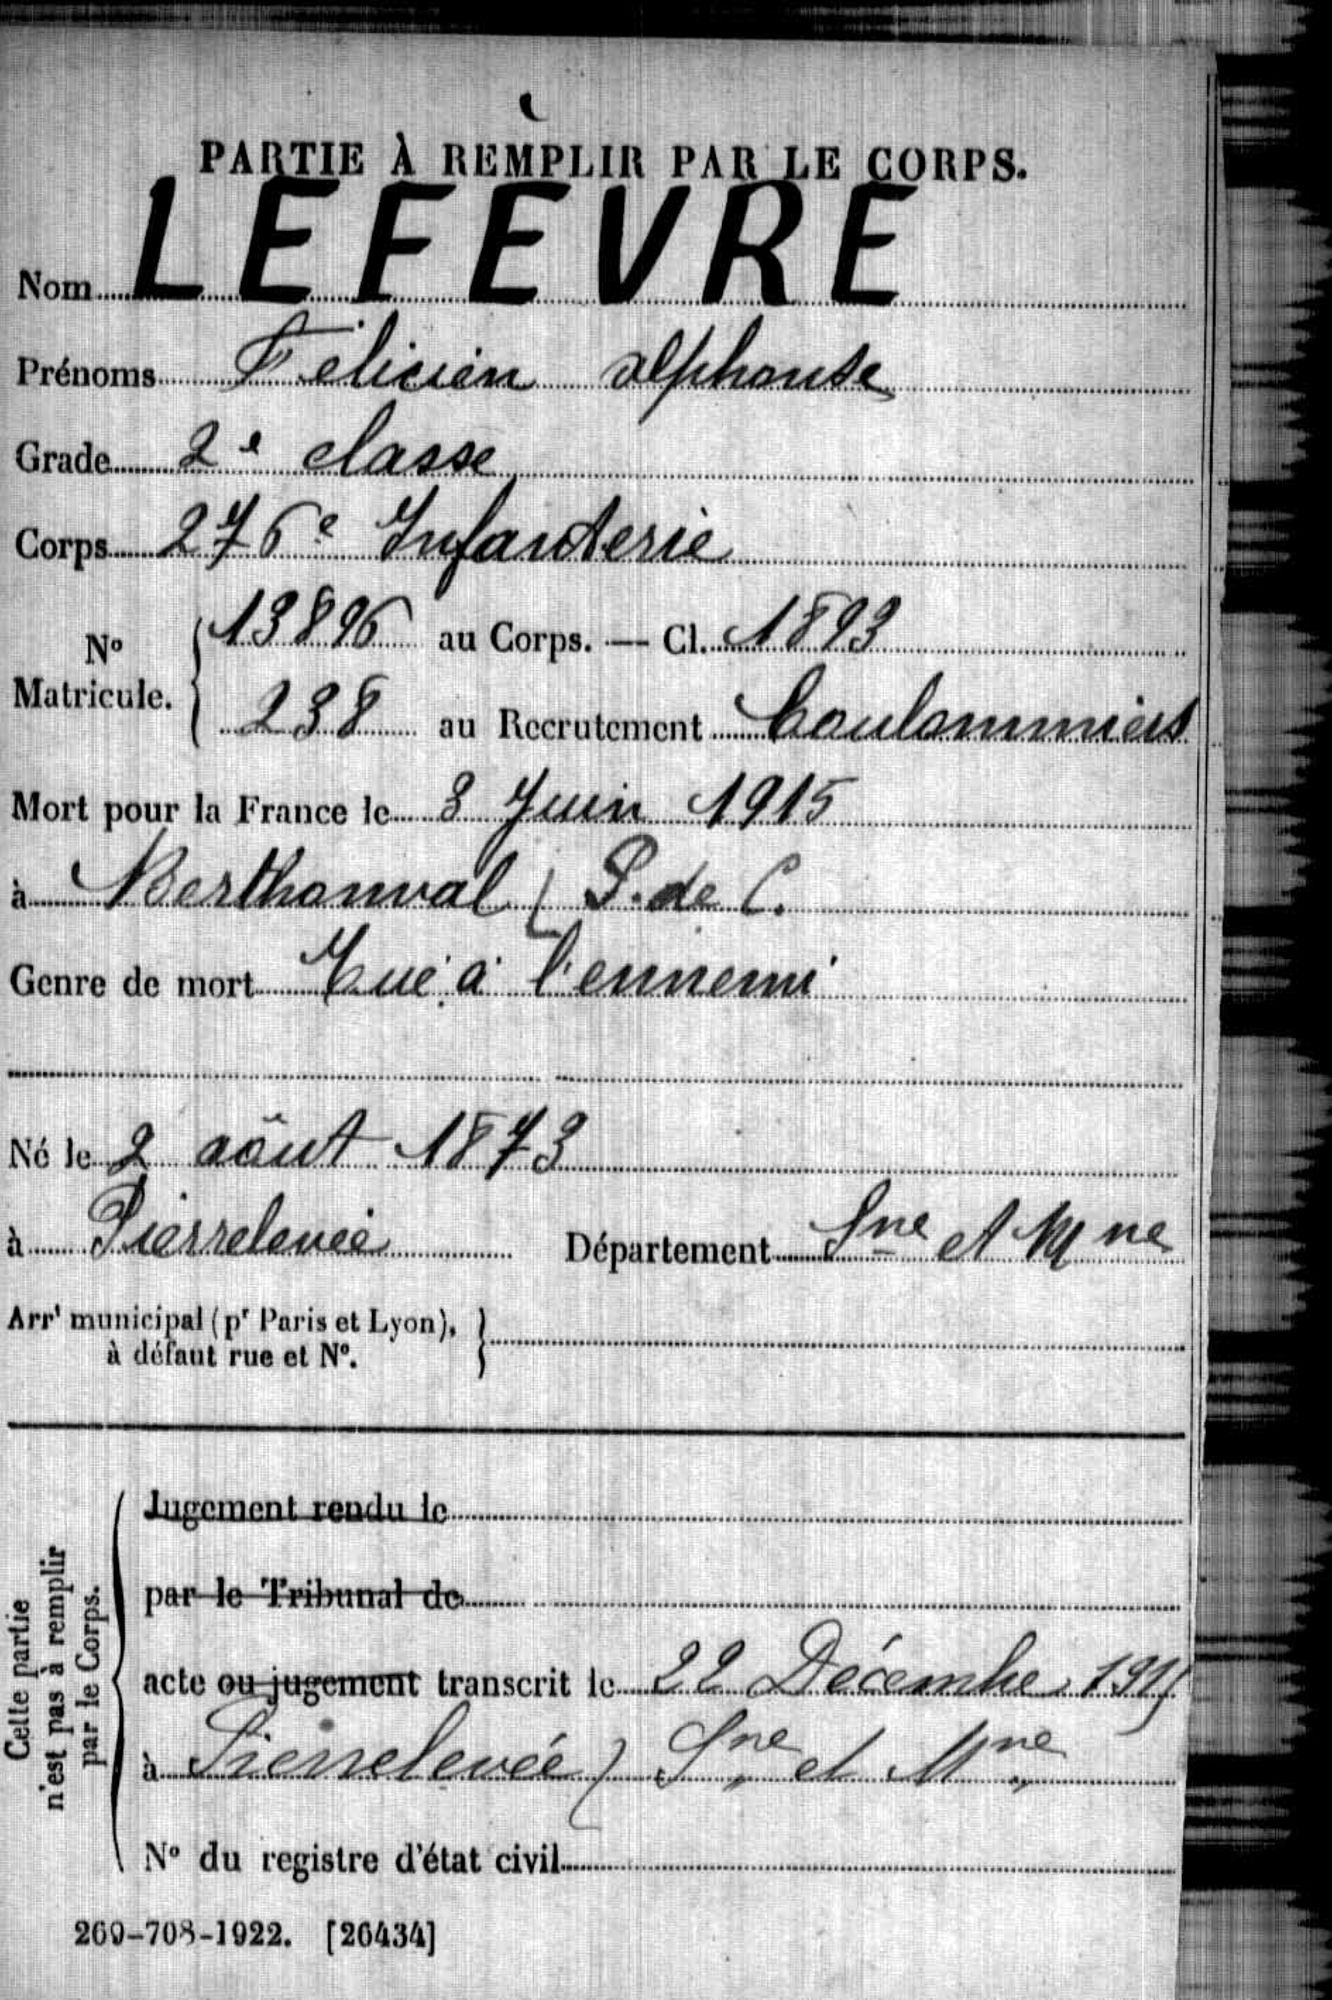 PARTIE À REMPLIR PAR LE CORPS.
Nom LEFEVRE
Prénoms Félicien alphonse
Grade 2e classe
Corps 276e Infanterie
No Matricule. 13896 au Corps. — Cl. 1893
238 au Recrutement Coulommiers
Mort pour la France le 3 Juin 1915
à Berthonval (P. de C.
Genre de mort Tué à l'ennemi
Né le 2 août 1873
à Pierrelevée Département Sne et Mne
Arrt municipal (pr Paris et Lyon),
à défaut rue et No.
Cette partie
n'est pas à remplir
par le Corps.
Jugement rendu le
par le Tribunal de
acte ou jugement transcrit le 22 Décembre 1915
à Pierrelevée) Sne et Mne
No du registre d'état civil
269-708-1922. [26434]